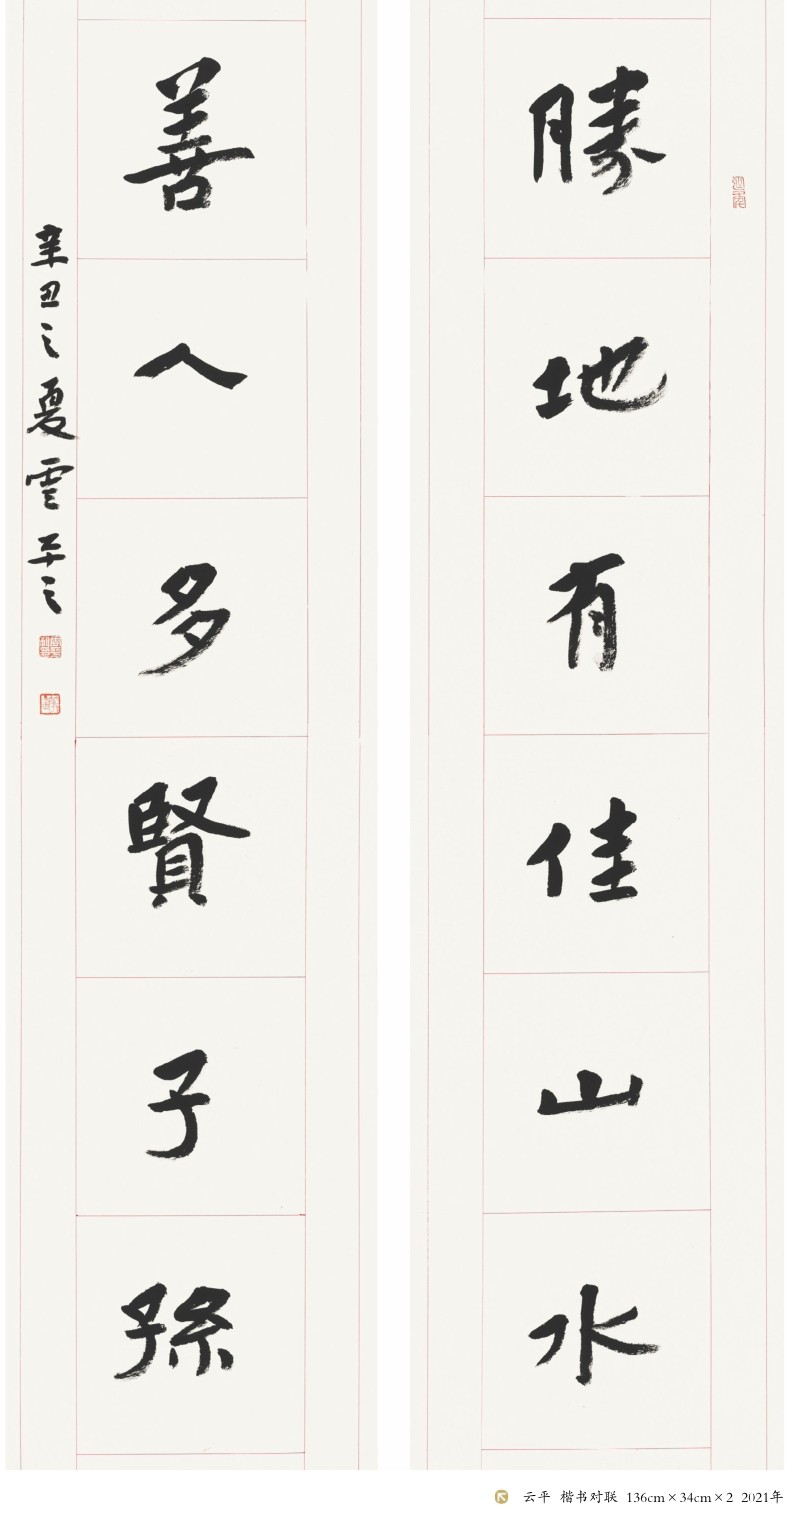 勝地有佳山水
善人多賢子孫
辛丑之夏雲平之
云平 楷书对联 136cm×34cm×2 2021年